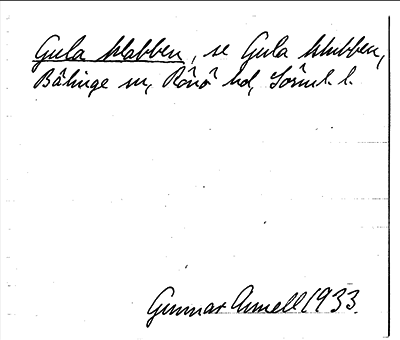 Gula klabben, se Gula klubben,
Bälinge sn, Rönö hd, Sörml. l.
Gunnar Annell 1933.